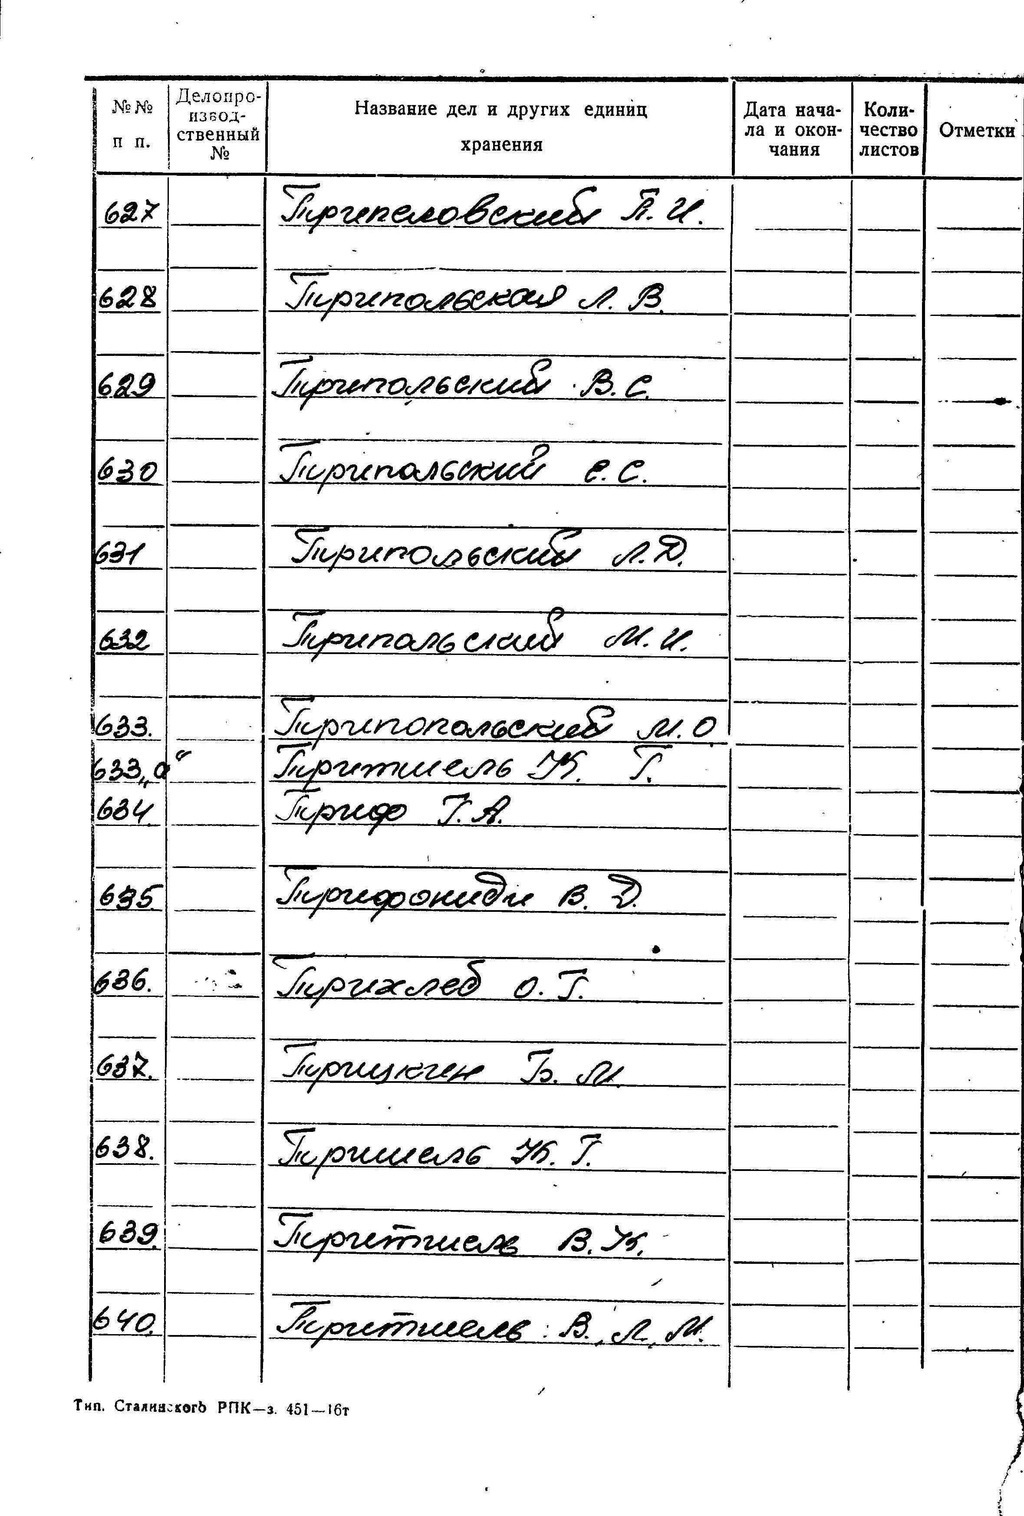 №№ п п. Делопроизвод-ственный № Название дел и других единиц хранения Дата нача-ла и окон-чания Коли-чество листов Отметки
627 Трипеловский П. И.
628 Трипольская Л. В.
629 Трипольский В. С.
630 Трипольский С. С.
631 Трипольский Л. Д.
632 Трипольский М. И.
633. Трипопольский М. О
633 „а“ Тритшель К. Г.
634. Триф Г. А.
635 Трифониди В. Д.
636. Трихлеб О. Г.
637. Трицкин Б. М.
638. Тришель К. Г.
639. Тритшель В. К.
640. Тритшель В. Л. М.
Тип. Сталинского РПК—з. 451—16т